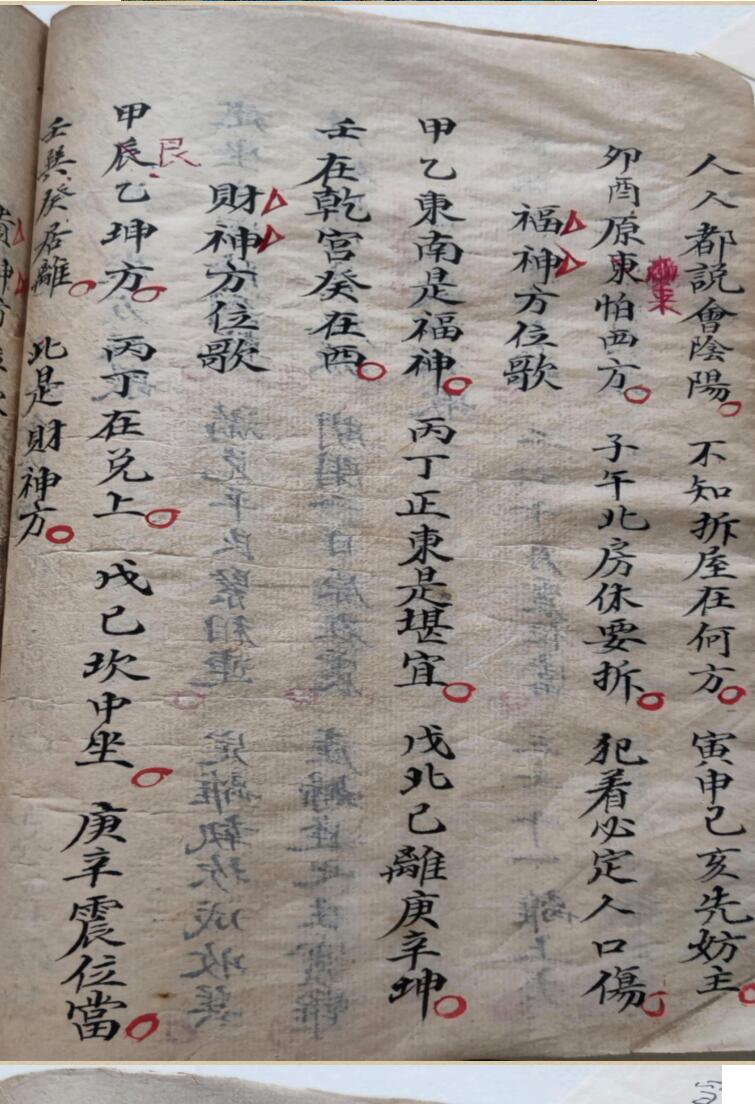 人人都說會陰陽 不知拆屋在何方 寅申巳亥先妨主
卯酉原東怕西方 子午北房休要拆 犯着必定人口傷
東
福神方位歌
甲乙東南是福神 丙丁正東是堪宜 戊北己離庚辛坤
壬在乾宮癸在西
財神方位歌
甲辰乙坤方 丙丁在兌上 戊己坎中坐 庚辛震位當
艮
壬巽癸居離 此是財神方
神方